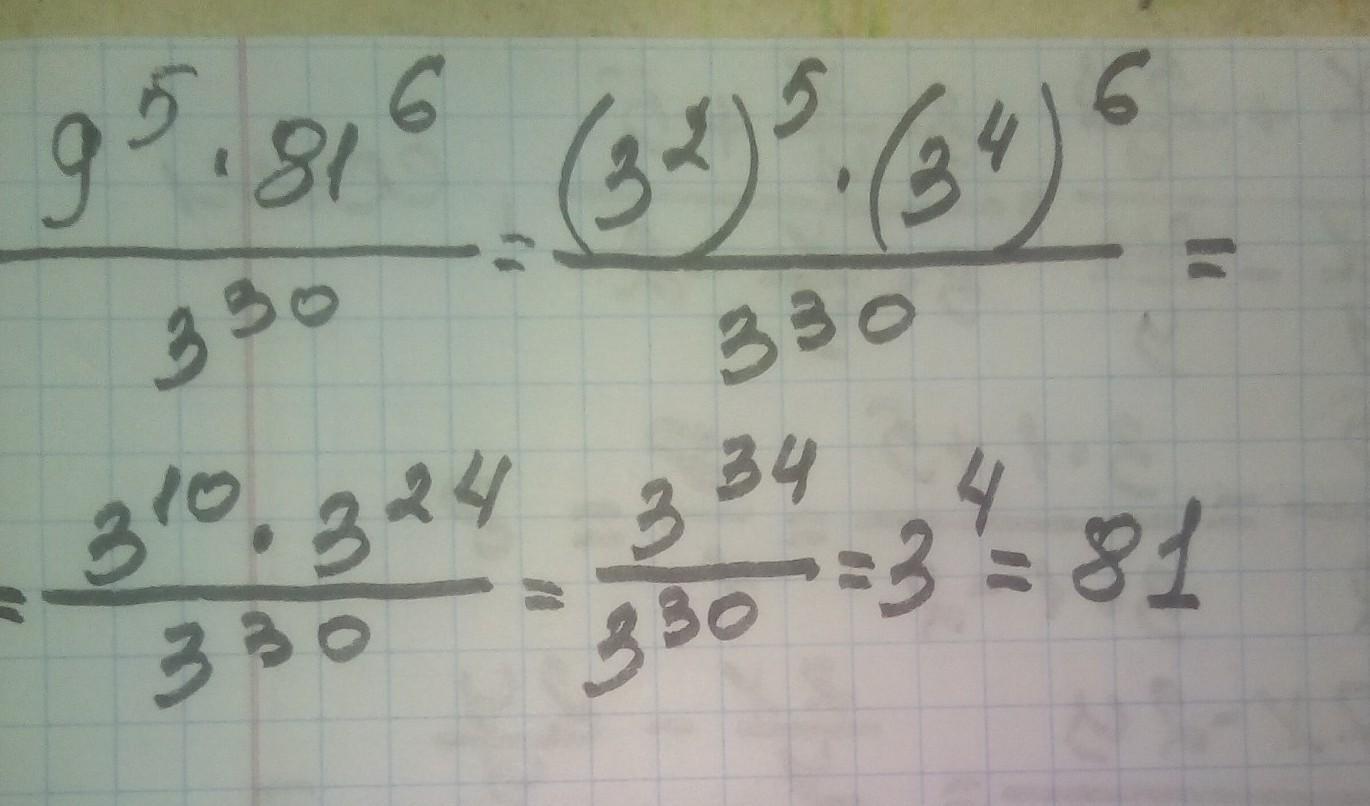 9⁵ · 81⁶ / 3³⁰ = (3²)⁵ · (3⁴)⁶ / 3³⁰ =
= 3¹⁰ · 3²⁴ / 3³⁰ = 3³⁴ / 3³⁰ = 3⁴ = 81